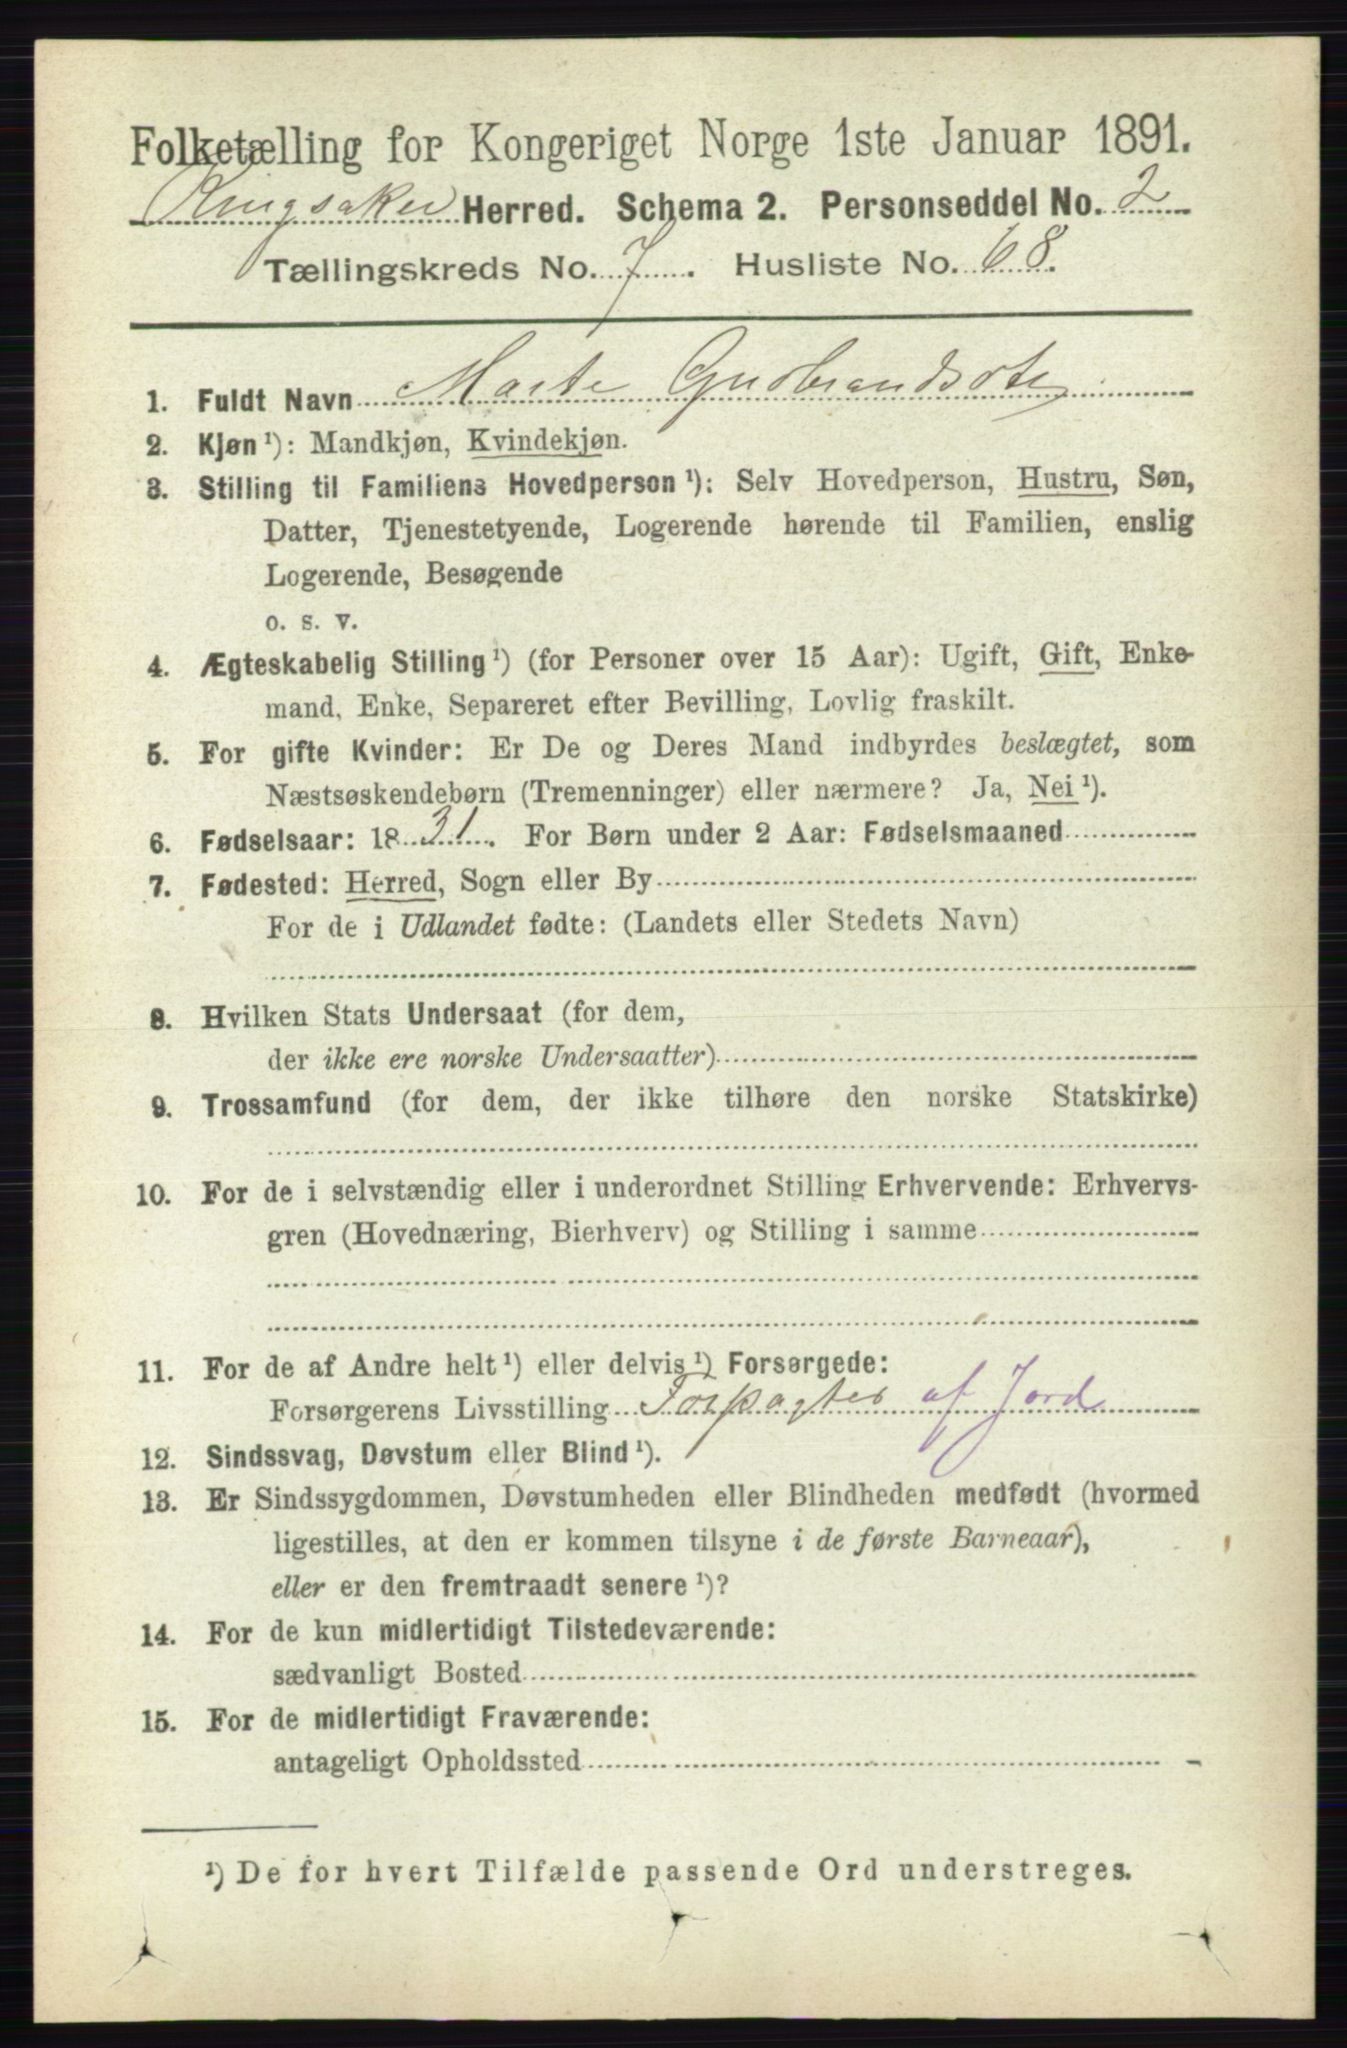 Folketælling for Kongeriget Norge 1ste Januar 1891.
Ringsaker Herred. Schema 2. Personseddel No. 2
Tællingskreds No. 7. Husliste No. 68.
1. Fuldt Navn Marte Gudbrandsdtr
2. Kjøn ¹): Mandkjøn, Kvindekjøn.
3. Stilling til Familiens Hovedperson ¹): Selv Hovedperson, Hustru, Søn,
Datter, Tjenestetyende, Logerende hørende til Familien, enslig
Logerende, Besøgende
o. s. v.
4. Ægteskabelig Stilling ¹) (for Personer over 15 Aar): Ugift, Gift, Enke-
mand, Enke, Separeret efter Bevilling, Lovlig fraskilt.
5. For gifte Kvinder: Er De og Deres Mand indbyrdes beslægtet, som
Næstsøskendebørn (Tremenninger) eller nærmere? Ja, Nei ¹).
6. Fødselsaar: 1831. For Børn under 2 Aar: Fødselsmaaned
7. Fødested: Herred, Sogn eller By
For de i Udlandet fødte: (Landets eller Stedets Navn)
8. Hvilken Stats Undersaat (for dem,
der ikke ere norske Undersaatter)
9. Trossamfund (for dem, der ikke tilhøre den norske Statskirke)
10. For de i selvstændig eller i underordnet Stilling Erhvervende: Erhvervs-
gren (Hovednæring, Bierhverv) og Stilling i samme
11. For de af Andre helt ¹) eller delvis ¹) Forsørgede:
Forsørgerens Livsstilling Forpagter af Jord
12. Sindssvag, Døvstum eller Blind ¹).
13. Er Sindssygdommen, Døvstumheden eller Blindheden medfødt (hvormed
ligestilles, at den er kommen tilsyne i de første Barneaar),
eller er den fremtraadt senere ¹)?
14. For de kun midlertidigt Tilstedeværende:
sædvanligt Bosted
15. For de midlertidigt Fraværende:
antageligt Opholdssted
¹) De for hvert Tilfælde passende Ord understreges.